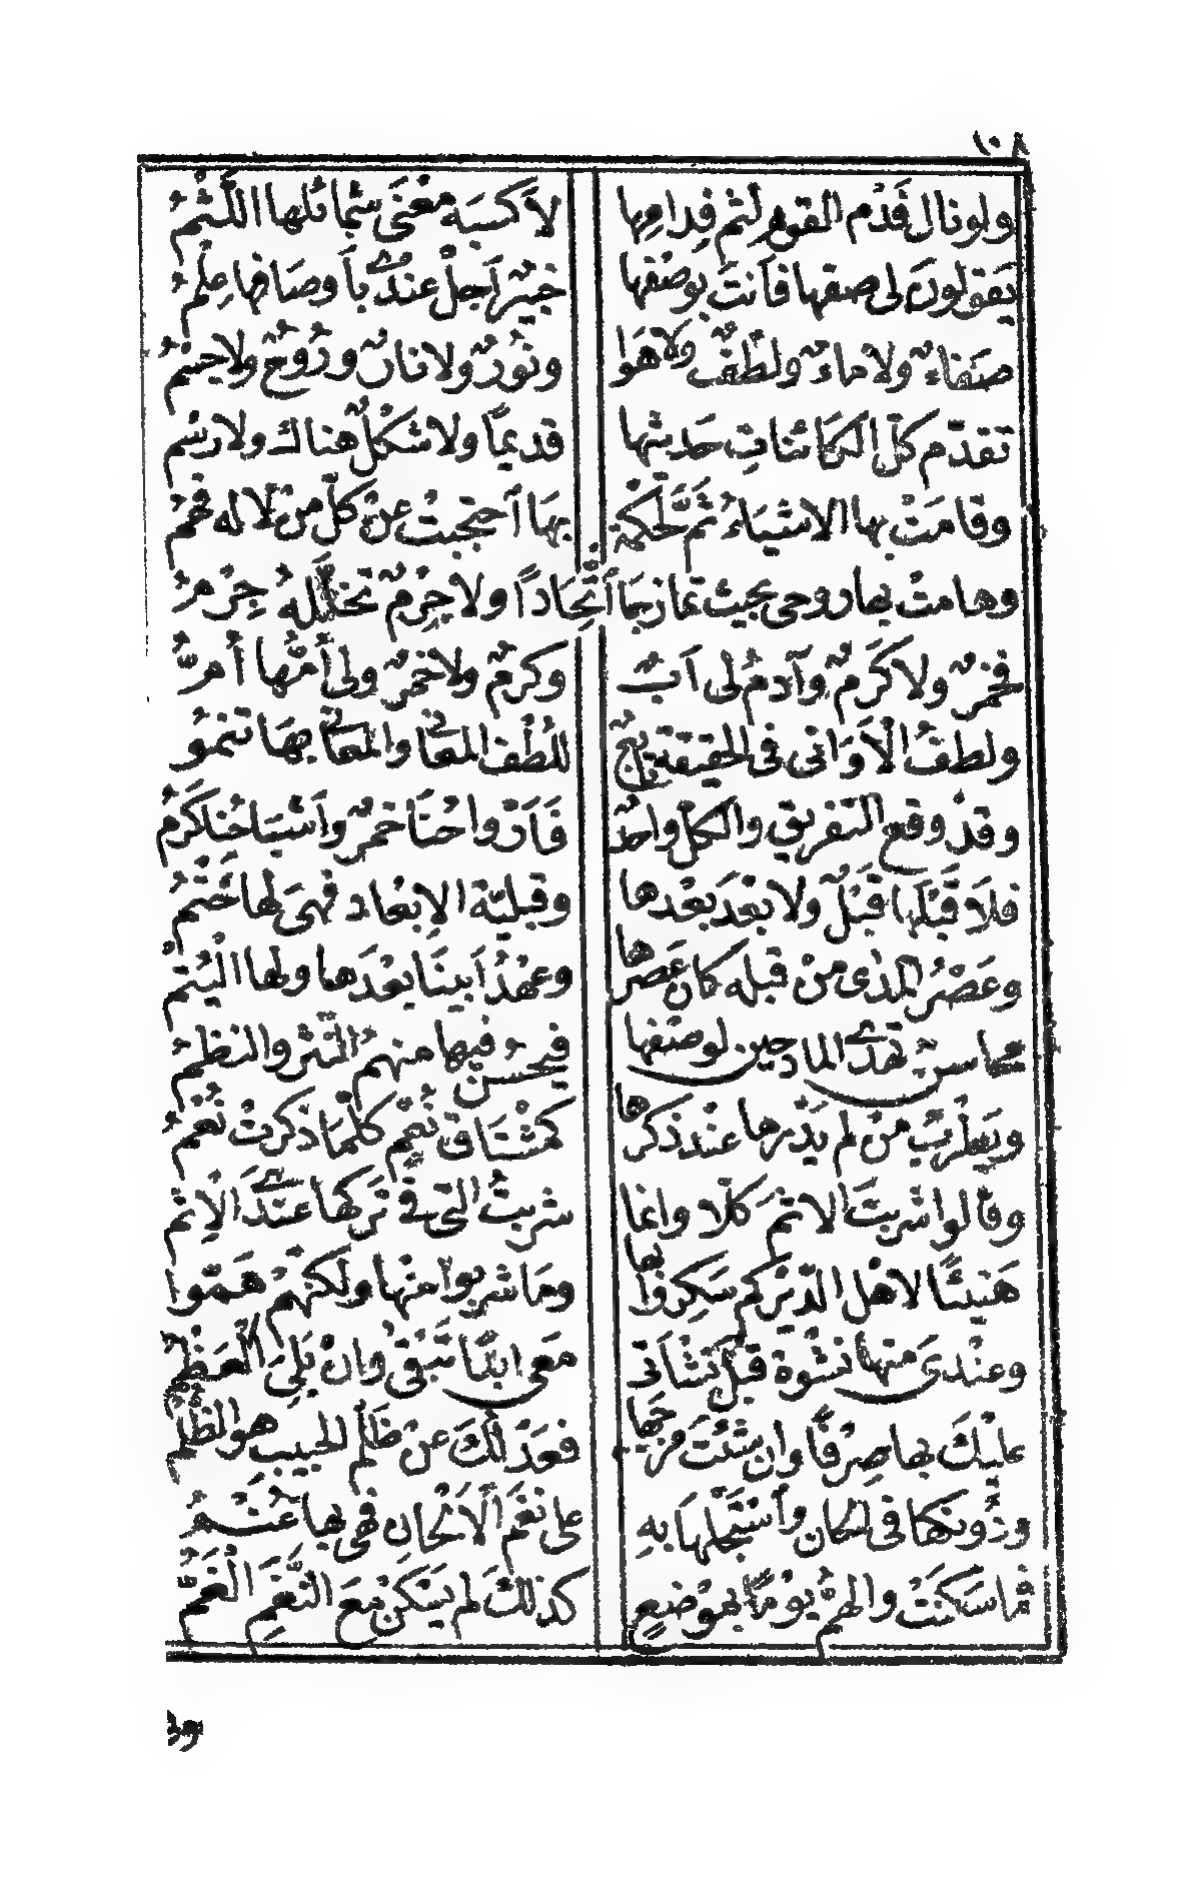 ١٠٨
ولو نال فَدْم القوم لثم فِدامها لأكسبه معنى شمائلها اللَّثْمُ
يقولون لى صفها فأنت بوصفها خبيرٌ أجلْ عندى بأوصافها عِلمُ
صفاءٌ ولا ماءٌ ولطفٌ ولا هَوا ونورٌ ولا نارٌ وروحٌ ولا جسْمُ
تقدّم كلّ الكائنات حديثها قديمًا ولا شكلٌ هناك ولا رسْم
وقامتْ بها الاشياءُ ثَمَّ لحكمة بها احتجبتْ عن كلّ منْ لا له فهْمُ
وهامتْ بها روحى بحيث تمازجا أتّحادًا ولا جِرْمٌ تخلّله جِرْمُ
فخمرٌ ولا كَرْمٌ وآدم لى اَبٌ وكرمٌ ولا خمرٌ ولى أمّها أمُّ
ولطفُ الأوانى فى الحقيقة تابعٌ للطف المعانى والمعانى بها تنمو
وقد وقع التفريق والكل واحدٌ فأرواحنا خمرٌ وأشباحنا كرْمُ
فلا قبلها قبْلٌ ولا بعْدَ بعْدها وقبليّة الابعاد فهى لها ختْمُ
وعَصْرُ المدى منْ قبله كان عصرها وعهْدُ ابينا بعْدَها ولها اليُتمْ
محاسنٌ تهدى المادحين لوصفها فيحسن فيها منهمُ النثرُ والنظمُ
ويطربُ منْ لم يدْرها عند ذكرها كمشتاق نُعْمٍ كلّما ذكرتْ نعْمُ
وقالوا شربتَ الاثمَ كلّا وانما شربتُ التى فى تركها عندى الاثم
هنيئًا لاهْل الدّير كم سكروا بها وما شربوا منها ولكنهم همّوا
وعنْدىَ منها نشوة قبْل نشأتى معى ابدًا تبقى وانْ بلىَ العظْمُ
عليْكَ بها صِرْفًا وان شئتَ مزجها فعدْلكَ عنْ ظَلْم الحبيب هو الظلمُ
ودُونكها فى الحان واستجلها بهِ على نغم الالحان فهى بها غُنْمُ
فما سكنتْ والهمُّ يومًا بموضعٍ كذلك لم يسْكنْ مع النَّغمِ الغمُّ
وفى